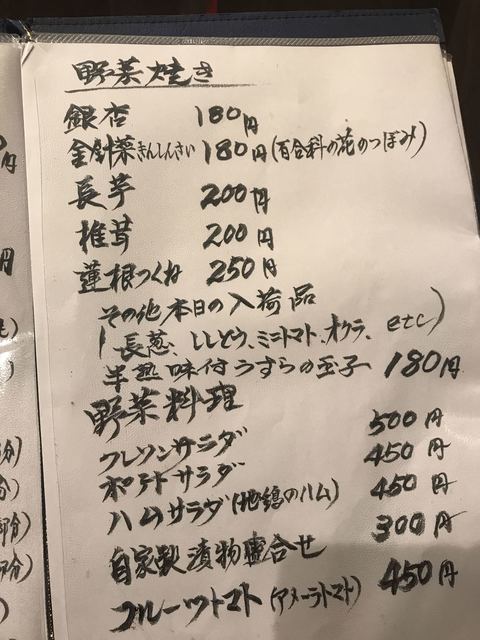 野菜焼き
銀杏 180円
金針菜きんしんさい 180円(百合科の花のつぼみ)
長芋 200円
椎茸 200円
蓮根つくね 250円
その他本日の入荷品
(長葱、ししとう、ミニトマト、オクラ、etc)
半熟味付うずらの玉子 180円
野菜料理
クレソンサラダ 500円
ポテトサラダ 450円
ハムサラダ(地鶏のハム) 450円
自家製漬物盛合せ 300円
フルーツトマト(アメーラトマト) 450円
円
円
分)
分)
部分)
部分)